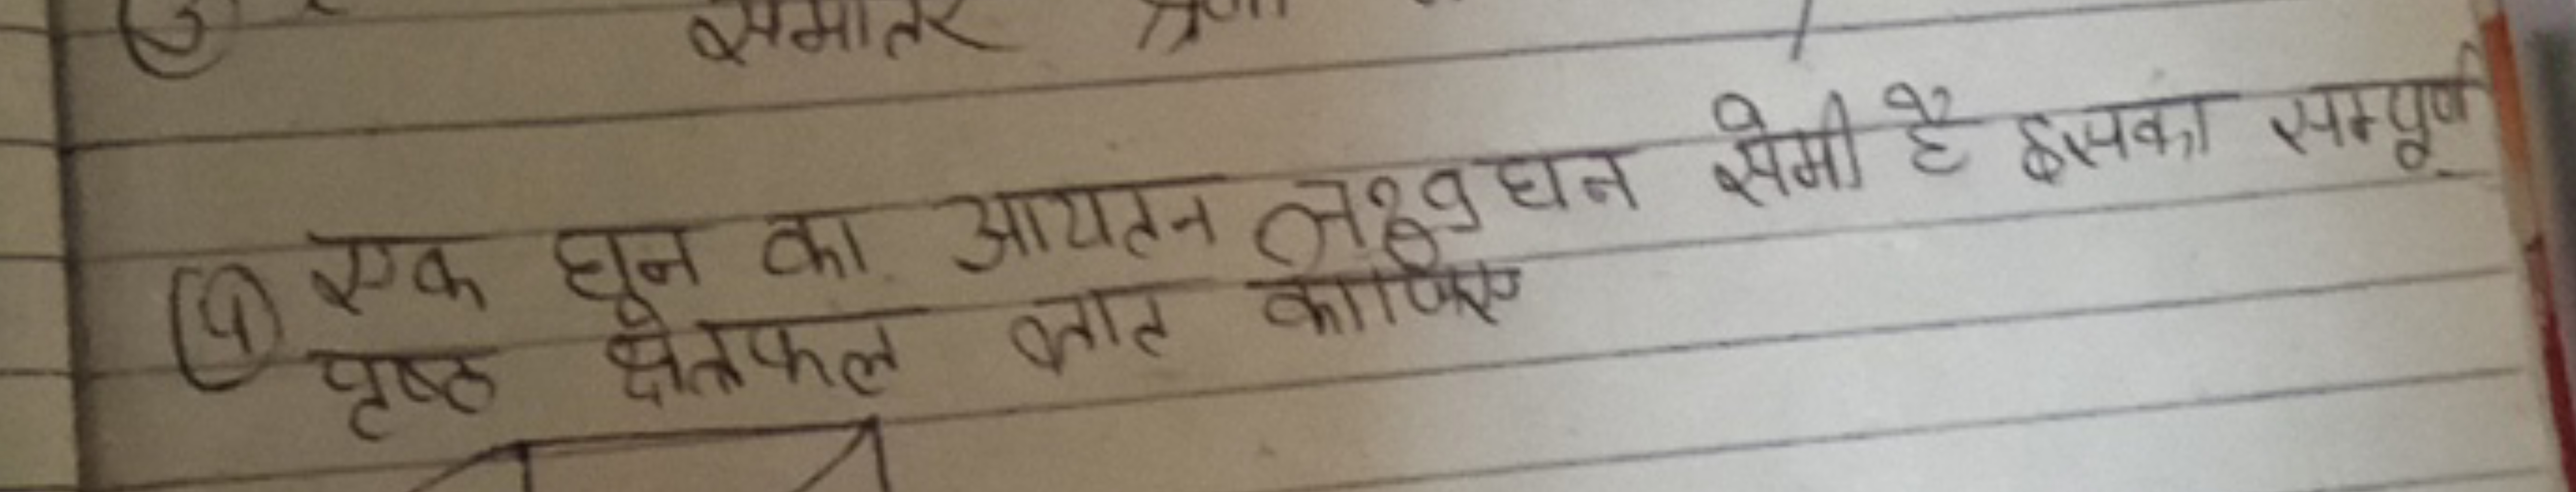 समांतर
एक घन का आयतन घन सेमी है इसका सम्पूर्ण
पृष्ठ क्षेत्रफल ज्ञात कीजिए